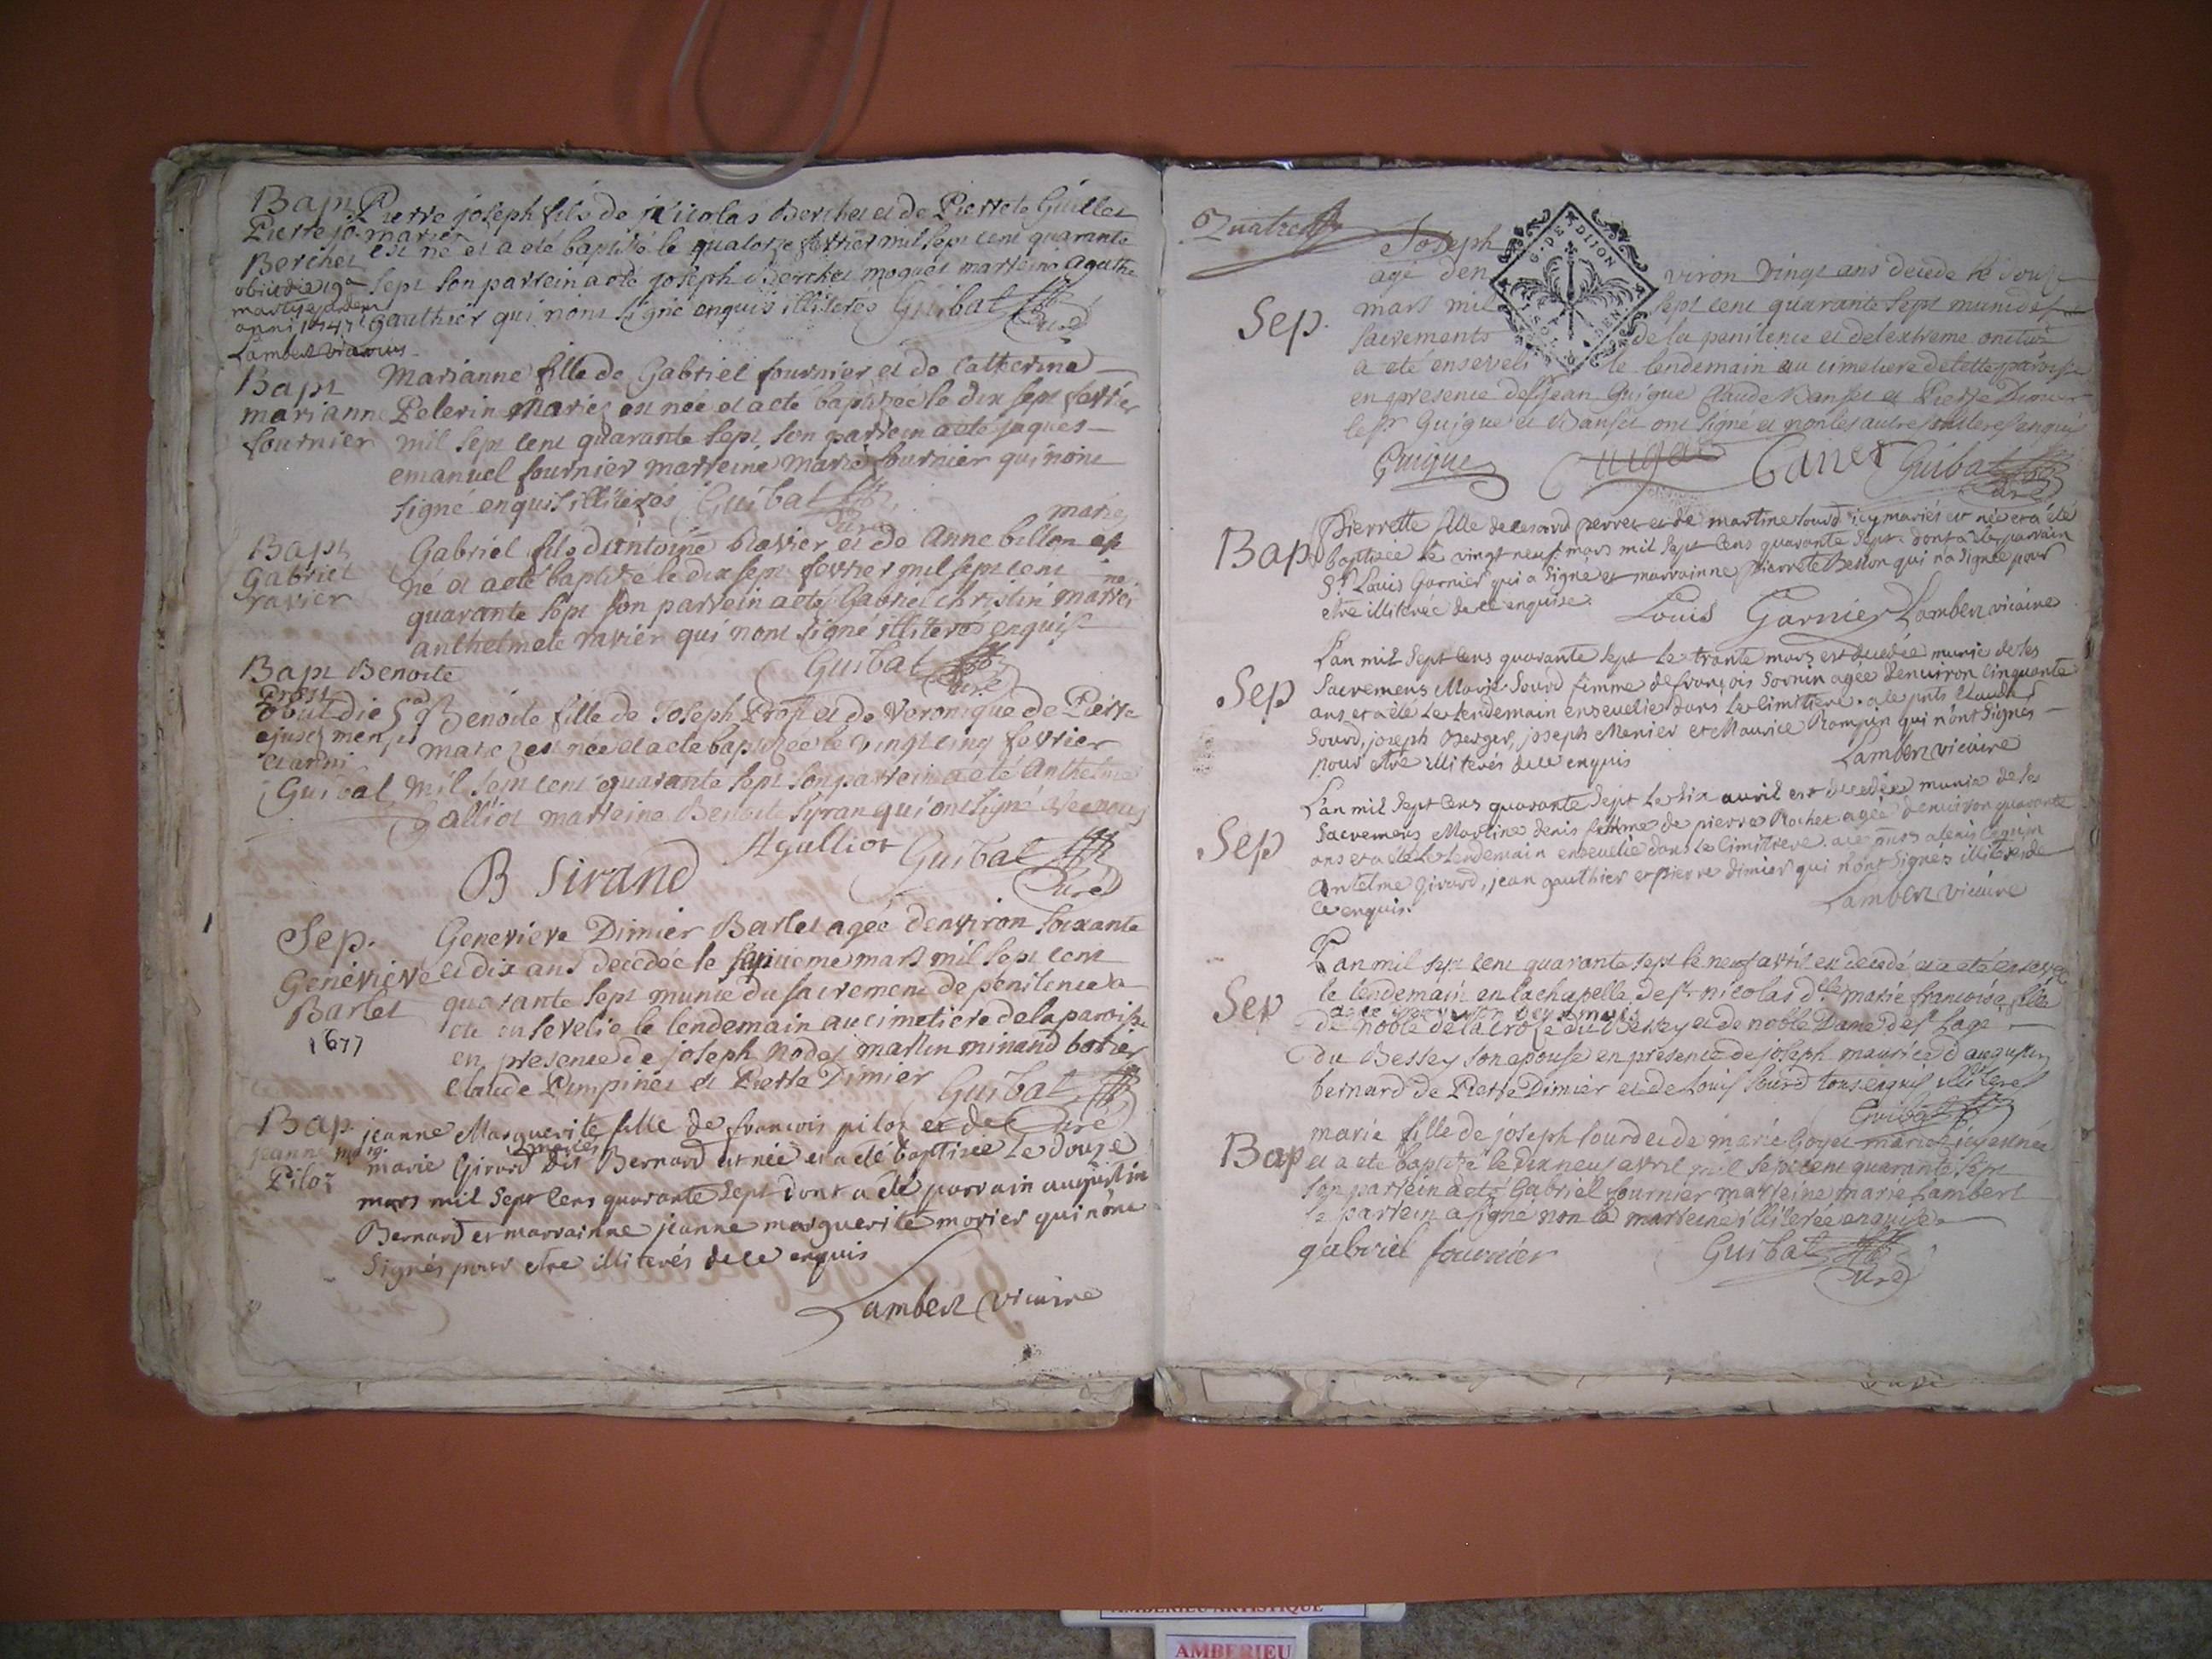 Bap Pierre joseph fils de nicolas Berchet et de Pierrete Guillet
Pierre jo. mariez
Berchet est né et a eté baptisé le quatorze fevrier mil sept cent quarante
obiit die 19a sept son parrein a eté joseph Berchet moquet marreine agathe
martij ejusdem
anni 1747 gauthier qui nont signé enquis illiteres Guibat
Curé
Lambert vicarius
Bapt Marianne fille de Gabriel fournier et de Catherine
marianne Pelerin mariez est née et a eté baptizée le dix sept fevrier
fournier mil sept cent quarante sept, son parrein a eté jaques
emanuel fournier marreine marie fournier qui nont
signé enquis illiterés Guibat
Curé
mariez
Bapt Gabriel fils d'Antoine Ravier et de Anne billon est
Gabriel né et a eté baptizé le dix sept fevrier mil sept cent
ravier quarante sept son parrein a eté Gabriel christin marrei
ne
anthelmete ravier qui nont signé illiteres enquis
Guibat
Curé
Bapt Benoite
Prost
obiit die 5a Benoite fille de Joseph Prost et de Veronique de Pierre
ejusd mensis
et anni marez est née et a eté baptizée le vingt cinq fevrier
Guibat mil sept cent quarante sept son parrein a eté Anthelme
Galliot marreine Benoite Syran qui ont signé avec nous
B Sirand AGalliot Guibat
Curé
Sep. Genevieve Dimier Barlet agée d'environ soixante
Genevieve et dix ans decedée le septieme mars mil sept cent
Barlet quarante sept munie du sacrement de penitence a
eté ensevelie le lendemain au cimetiere de la paroisse
1677
en presence de joseph nodet martin minand borier
Claude Pimpinet et Pierre Dimier Guibat
Curé
Bap. jeanne Marguerite fille de francois piloz et de
jeanne mg
mariés
Piloz marie Girard dit Bernard est née et a été baptisée le douze
mars mil sept cens quarante sept dont a été parrain augustin
Bernard et marrainne jeanne marguerite morier qui n'ont
signés pour etre illiterés de ce enquis
Lambert vicaire
Quatre
Joseph
agé den viron vingt ans decede le douze
Sep. mars mil sept cent quarante sept muni des
sacrements de la penitence et de lextreme onction
a eté enseveli le lendemain au cimetiere de cette paroisse
en presence de Sr Jean Guigue Claude Banset et Pierre Dimier
le Sr Guigue et Banset ont signé et non les autres illiteres enquis
G. DE DIJON
SOLS DEN
Guigue Guibat
Curé
Bap Pierrette fille de cesard perret et de martine sourd icy mariés est née et a été
baptisée le vingt neuf mars mil sept cens quarante sept dont a été parrain
Sr Louis Garnier qui a signé et marrainne pierrete Bellon qui n'a signée pour
etre illiterée de ce enquise. Louis Garnier Lambert vicaire
Sep L'an mil sept cens quarante sept le trante mars est decedée munie de ses
sacremens Marie Sourd femme de francois Sornin agée denviron cinquante
ans et a été le lendemain ensevelie dans le cimitiere a ce pnts Claude
Sourd, joseph Berger, joseph Menier et Maurice Rompin qui n'ont signés
pour etre illiterés de ce enquis Lambert vicaire
Sep L'an mil sept cens quarante sept le six avril est decedée munie de ses
sacremens Martine denis femme de pierre Rochet agée denviron quarante
ans et a été le lendemain ensevelie dans le cimitiere a ce pnts alexis Cequin
Antelme girard, jean gauthier et pierre dimier qui n'ont signés illiterés de
ce enquis. Lambert vicaire
Sep L'an mil sept cent quarante sept le neuf avril est decedé et a eté ensevelie
le lendemain en la chapelle de st nicolas dlle marie francoise fille
agée d'environ deux mois
de noble de la croze du Bessey et de noble Dame de st Sage
du Bessey son epouse en presence de joseph maurice d'augustin
bernard de Pierre Dimier et de Louis Sourd tous enquis illiteres
Guibat
Bap marie fille de joseph sourd et de marie Goyet mariez icy est née
et a eté baptizé le dix neuf avril mil sept cent quarante sept
son parrein a eté Gabriel fournier marreine marie Lambert
le parrein a signé non la marreine illiterée enquise
gabriel fournier Guibat
Curé
AMBERIEU ARTISTIQUE
AMBERIEU